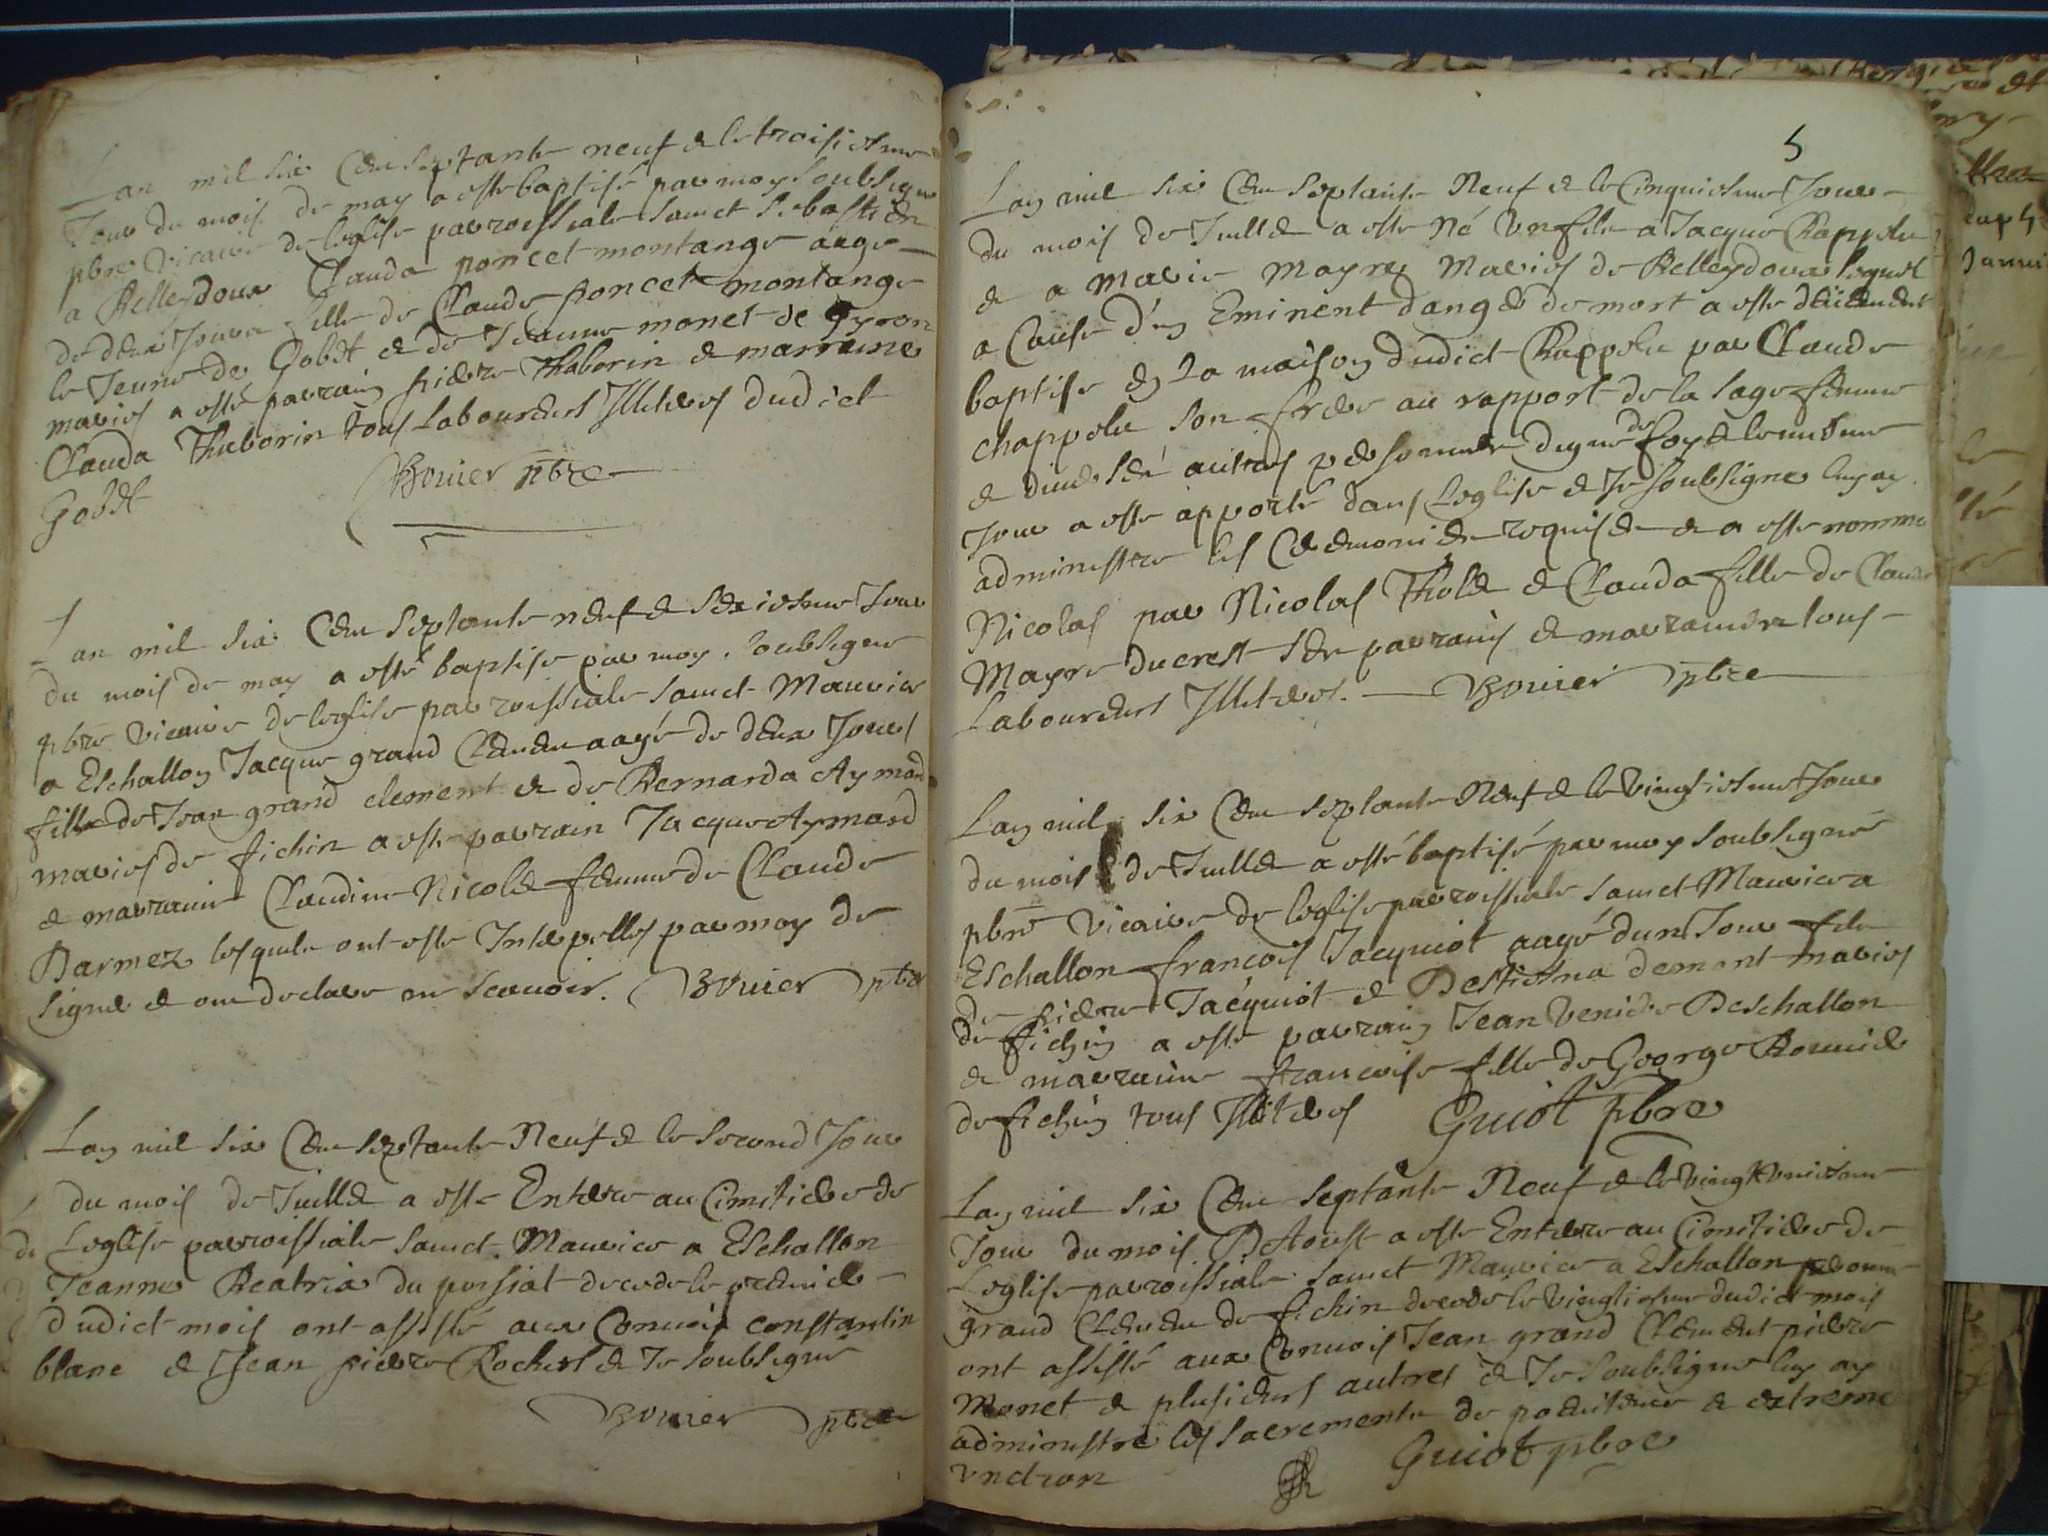 Lan mil six Cent septante neuf & le troisiesme
Jour du mois de may a esté baptisé par moy soubsigné
pbre vicaire de leglise parroissiale sainct Sebastien
a Belleydoux Clauda poncet montange aage
de deux Jours fille de Claude poncet montange
le Jeune de Gobet & de Jeanne monet de Gyron
maries a esté parrain pierre Thaborin & marraine
Clauda Thaborin tous Laboureurs Illiteres dudict
Gobet
Bouier pbre
Lan mil six Cent septante neuf & seziesme Jour
du mois de may a esté baptisé par moy soubsigne
pbre vicaire de leglise parroissiale sainct Maurice
a Eschallon Jacque grand Clement aagé de deux Jours
fille de Jean grand clement & de Bernarda Aymard
maries de fichin a este parrain Jacque Aymard
& marraine Claudine Nicolet femme de Claude
Darmez lesquels ont este Interpelles par moy de
signer & ont declare ne scauoir. Bouier pbre
Lan mil six Cent septante Neuf & le second Jour
du mois de Juillet a este Enterre au Cimitiere de
Leglise parroissiale sainct Maurice a Eschallon
Jeanne Beatrix du possiat decede le premier
dudict mois ont assisté aux Conuois constantin
blanc & Jean pierre Rochest & Je soubsigne
Bouier pbre
5
Lan mil six Cent septante Neuf & le Cinquiesme Jour
du mois de Juillet a este Né Un fils a Jacque Chappelu
& a Marie Mayre Maries de Belleydoux lequel
a Cause d'un Eminent danger de mort a este
baptise en la maison dudict Chappelu par Claude
chappelu son frere au rapport de la sage femme
& diuerses autres personnes digne de foy & le mesme
Jour a este apporté dans Leglise & Je soubsigne luy ay
administre les Ceremonies requises & a este nomme
Nicolas par Nicolas Tholet & Clauda fille de Claude
Mayre ducrest ses parrains & marraines tous
Laboureurs Illiteres. Bouier pbre
Lan mil six Cent septante Neuf & le vingtiesme Jour
du mois de Juillet a esté baptisé par moy soubsigné
pbre vicaire de leglise parroissiale sainct Maurice a
Eschallon francois Jacquiot aagé dun Jour fils
de pierre Jacquiot & Destiesna demont maries
de fichin a este parrain Jean Venier Deschallon
& marraine francoise fille de George Bouuier
de fichin tous Illiteres Guiot pbre
Lan mil six Cent septante Neuf & le vingt huitiesme
Jour du mois D'Aoust a este Enterre au Cimitiere de
Leglise parroissiale sainct Maurice a Eschallon
grand Clement de fichin decede le vingtiesme dudict mois
ont assisté aux Conuois Jean grand Clement pierre
Monet & plusieurs autres & Je soubsigne luy ay
administré les sacrements de penitence & extreme
vnction Guiot pbre